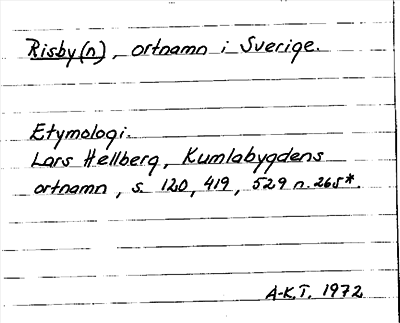 Risby(n), ortnamn i Sverige.
Etymologi.
Lars Hellberg, Kumlabygdens
ortnamn, s. 120, 419, 529 n. 265*.
A-K.T. 1972